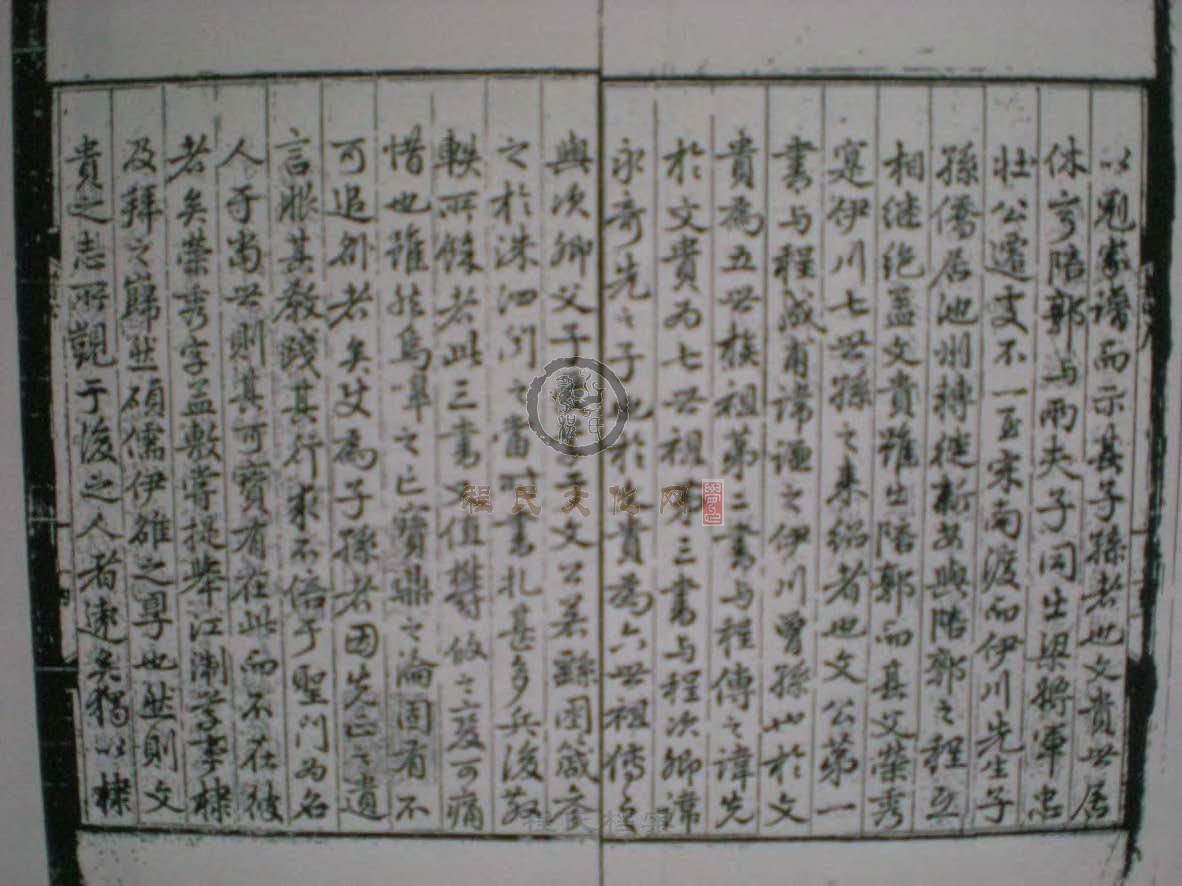 以冠家譜而示其子孫者也文貴世居
休寧陪郭与兩夫子同出梁將軍忠
壮公遷支不一至宋南渡而伊川先生子
孫僑居池州轉徙新安與陪郭之程互
相继絶盖文貴雖出陪郭而其父榮秀
寔伊川七世孫之来紹者也文公第一
書与程成甫諱逥之伊川曾孫也於文
貴為五世族祖第二書与程傳之諱先
於文貴為七世祖第三書与程次卿諱
永奇先之子也於文貴為六世祖傳之
與次卿父子 文公若繇園箴
之於洙泗 書札甚多兵後散
軼所餘者此三書 值 之 可痛
惜也雖然烏 之亡寳鼎之淪固有不
可追 者矣 為子孫者因先正之遺
言 其教踐其行求不倍于聖門為名
人于當世則其可寳者在此而不在彼
者矣榮秀字孟敷嘗提舉江淛 事棣
及拜之巋然碩儒伊雒之 也然則文
貴之志所觀于後之人者遠矣獨以棣
程氏文化网